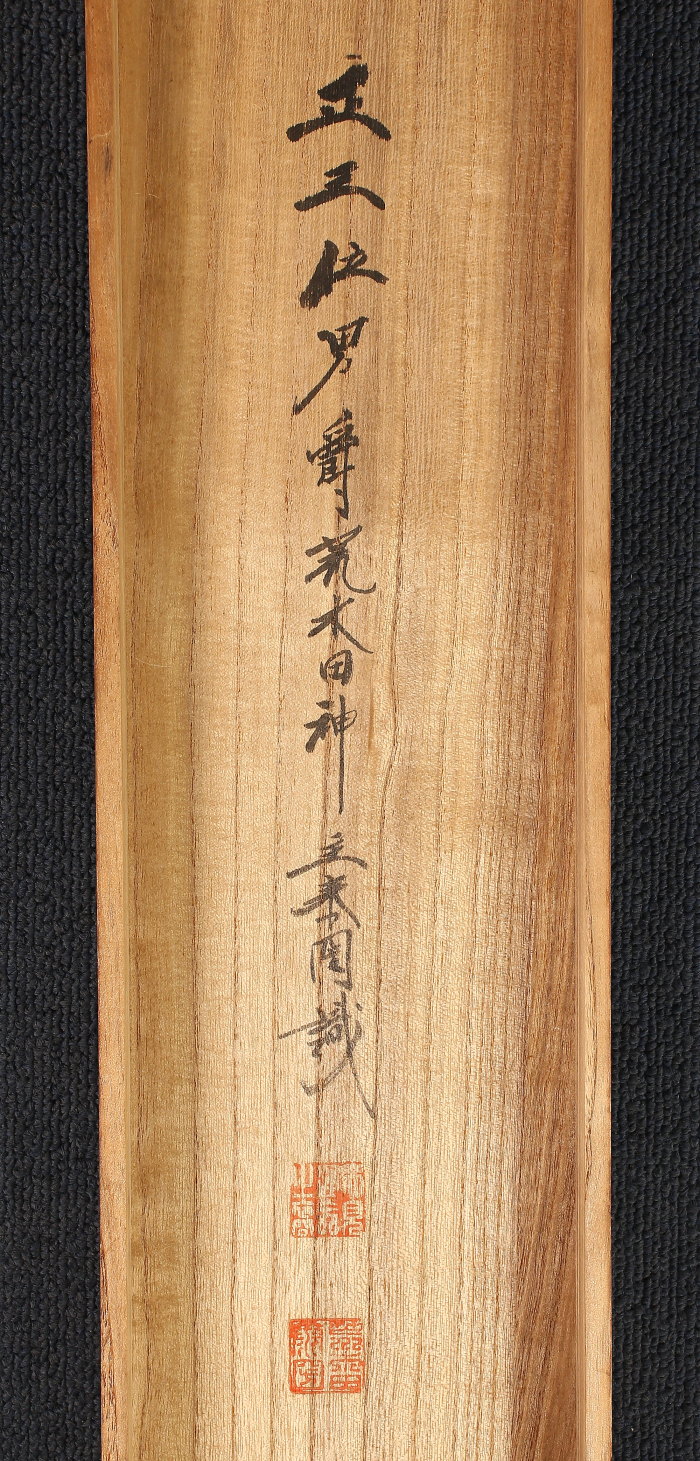 正三位男爵荒木田神主泰圀識